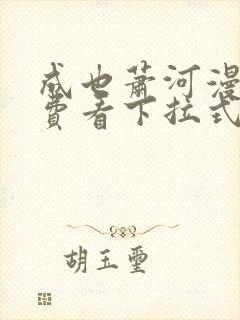 成也萧河漫
费看下拉式
胡玉玺